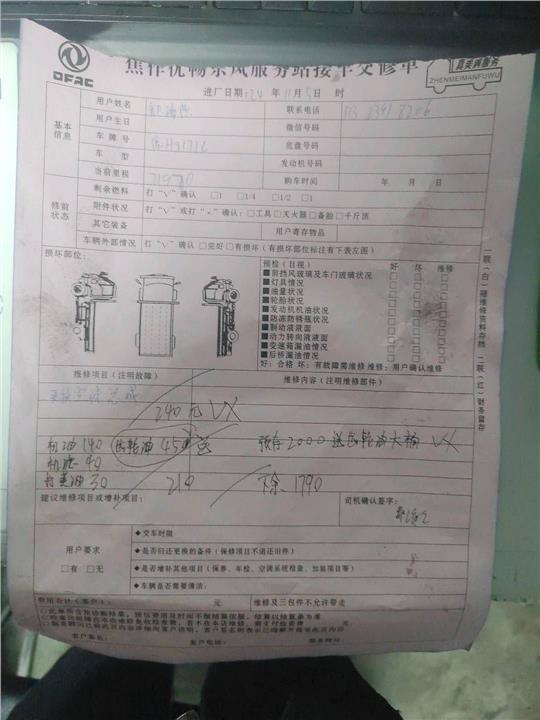 DFAC
焦作优畅东风服务站接车交修单
真美满服务
ZHENMEIMANFUWU
进厂日期：24 年 11 月 5 日 时
基本信息
用户姓名 联系电话
用户生日 微信号码
车牌号 底盘号码
车型 发动机号码
当前里程 购车时间 年 月 日
修前状态
剩余燃料 打“√”确认 □1 □1/4 □1/2 □1
附件状况 打“√”或打“×”确认：□工具□灭火器□备胎□千斤顶
其它装备 用户寄存物品
车辆外部情况 打“√”确认□完好□有损坏(有损坏部位标注有下表左图)
损坏部位：
预检(目视) 好 坏 维修
■前挡风玻璃及车门玻璃状况
■灯具情况
■油量状况
■轮胎状况
■发动机机油状况
■防冻防锈瓶状况
■制动液液面
■动力转向液液面
■变速箱漏油情况
■后桥漏油情况
好：合格 坏：有故障需维修 维修：用户确认维修
一联(白)随维修资料存档 二联(红)财务留存
维修项目(注明故障) 维修内容(注明维修部件)
240元 VX
机油 140 齿轮油 45 预存2000送齿轮油大桶 VX
机滤 40
30 210 下余1790
建议维修项目或增补项目： 司机确认签字：
用户要求
□有 □无
◆交车时限
◆是否归还更换的备件(保修项目不退还旧件)
◆是否增补其他项目(保养、年检、空调系统检查、加装项目等)
◆车辆是否需要清洁：
费用合计(客户)： 元 维修及三包件不允许带走
客户签名： 客户电话：